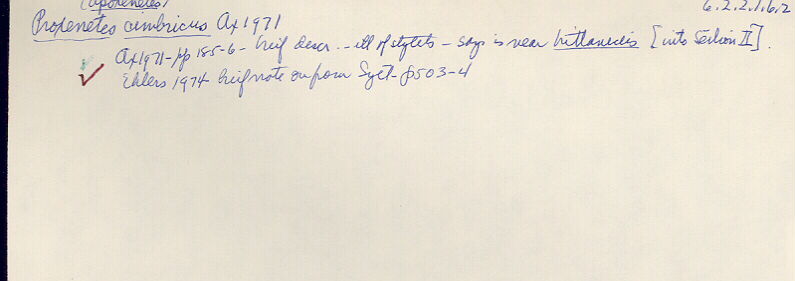 (aporenetes) 6.2.2.1.6.2
Proxenetes cimbricus Ax 1971
Ax 1971 - pp 185-6 - brief descr. - ill of stylets - says is near brittanensis [into Section II].
Ehlers 1974 brief note on from Sylt - p503-4